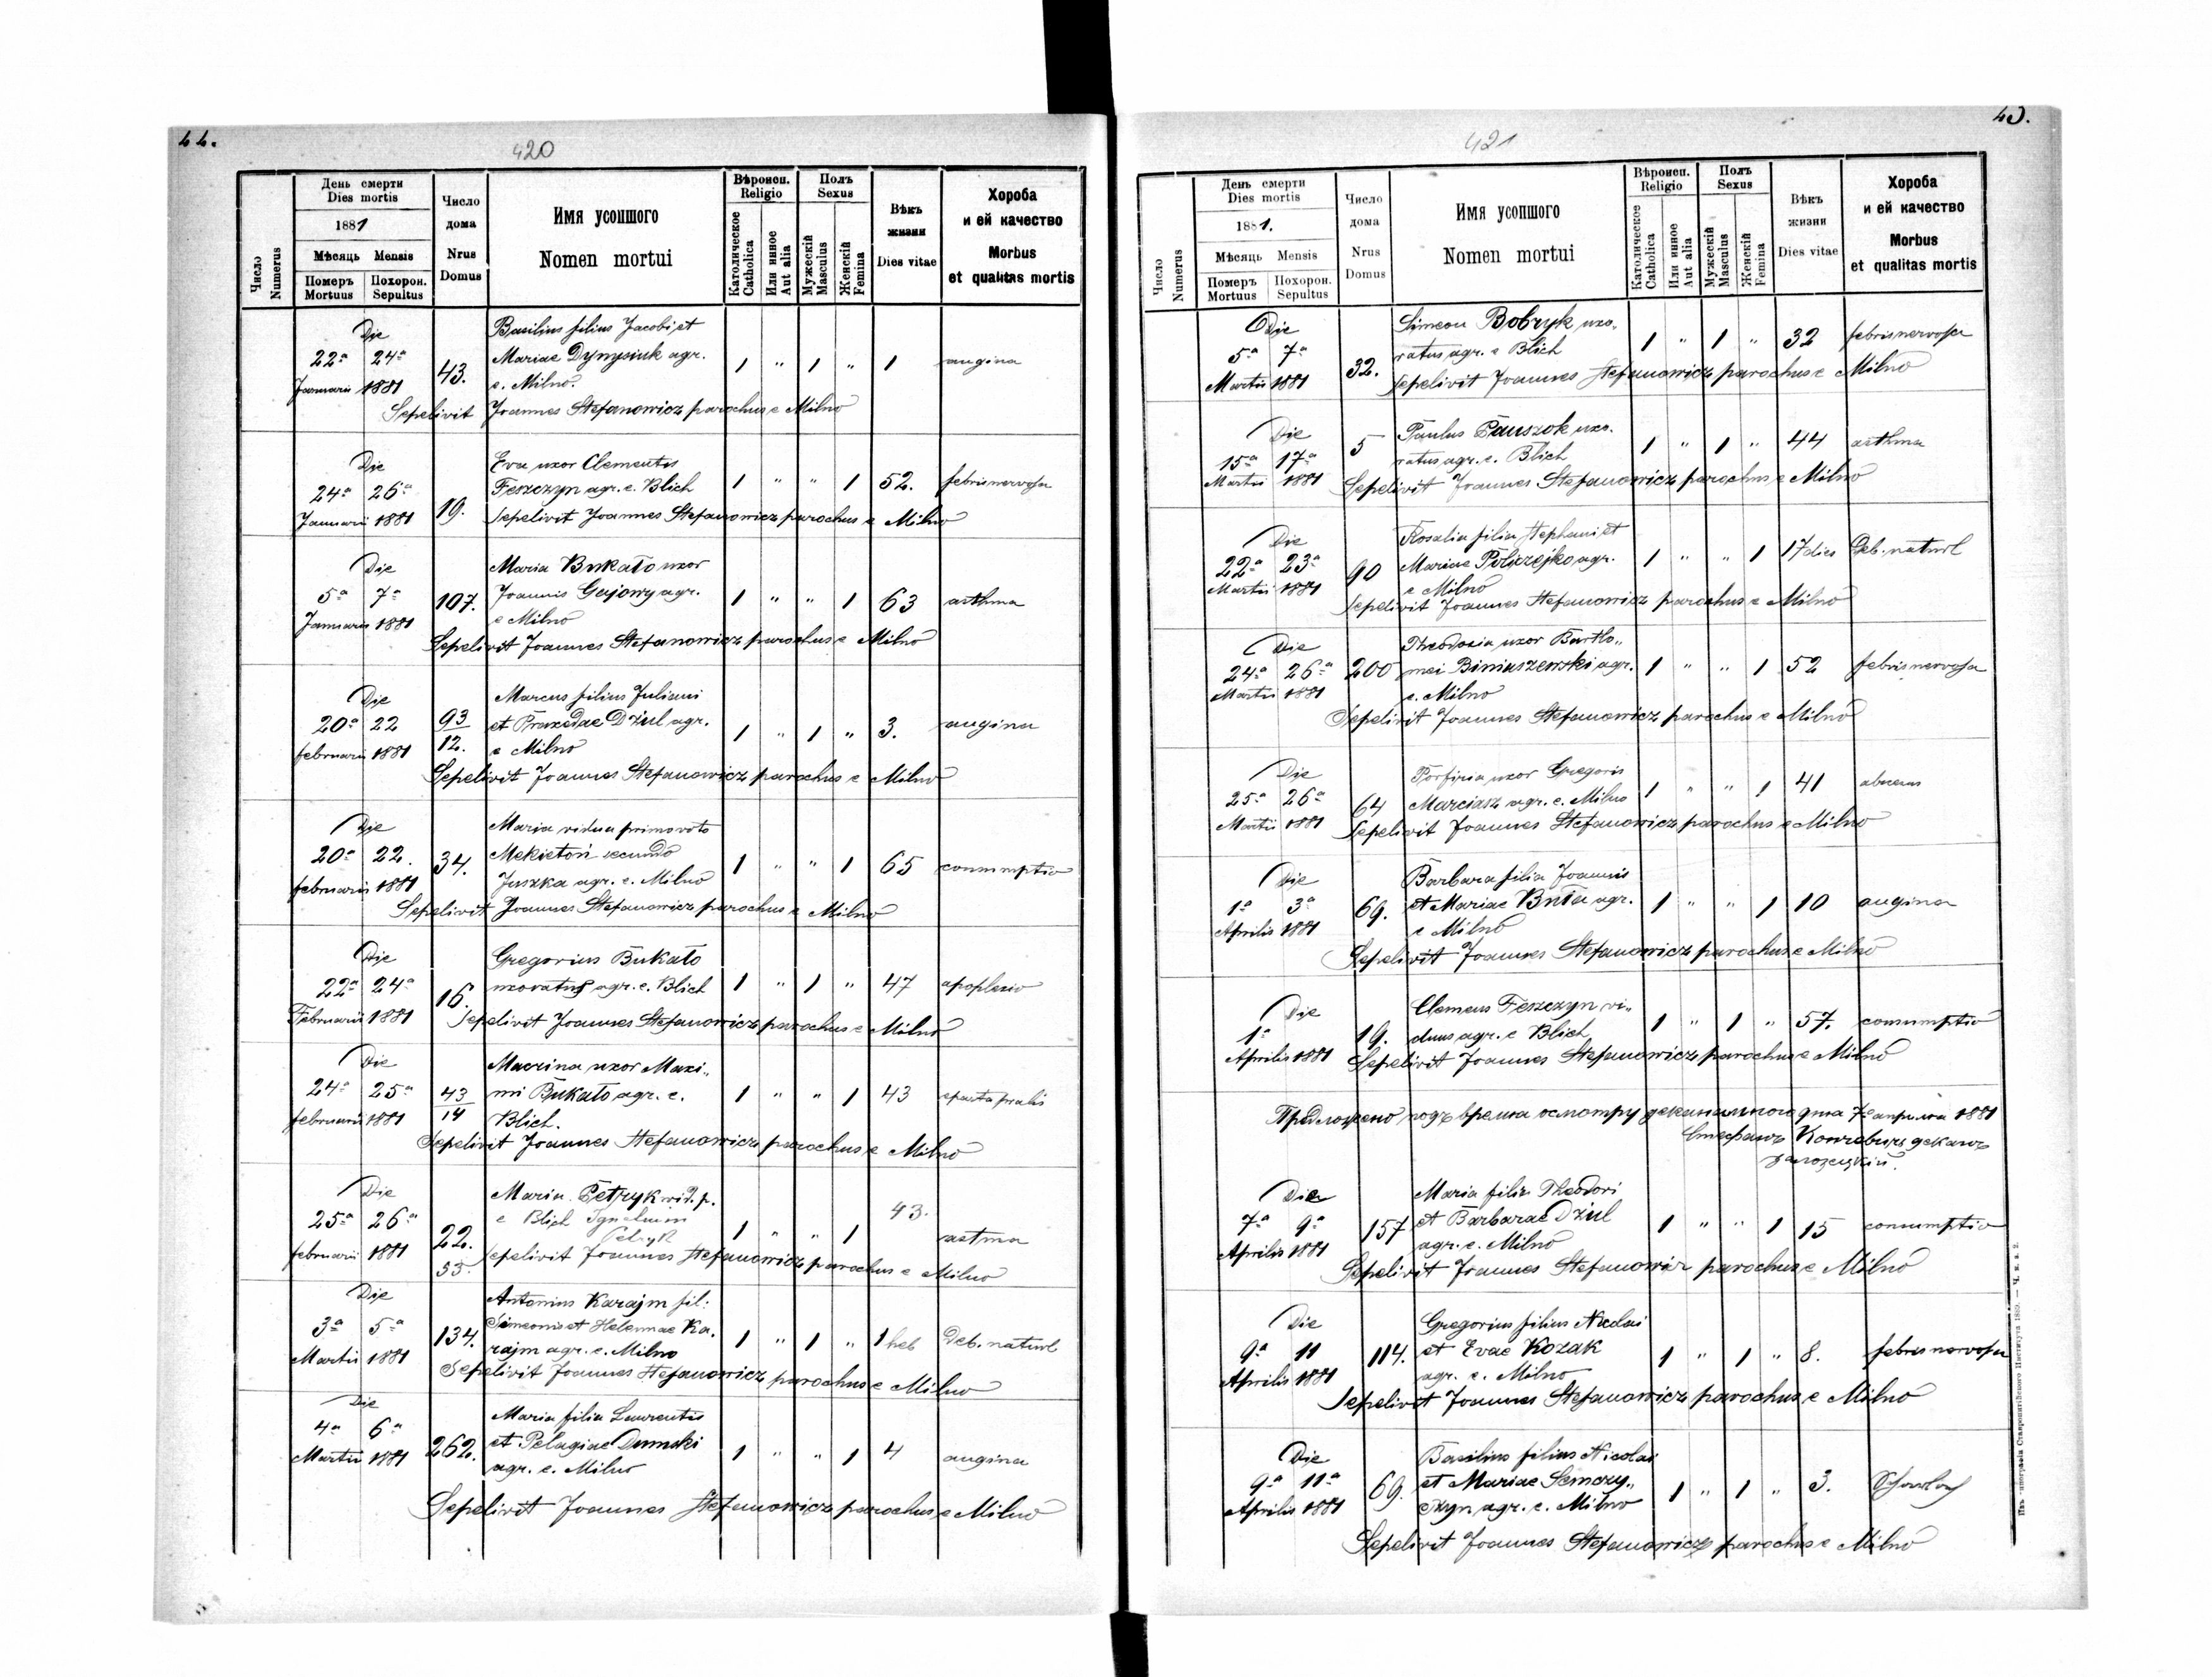 44.
420
День смерти
Dies mortis
1881
Мѣсяць Mensis
Померъ Похорон.
Mortuus Sepultus
Число
Numerus
Число
дома
Nrus
Domus
Имя усопшого
Nomen mortui
Вѣроисп.
Religio
Католическое
Catholica
Или инное
Aut alia
Полъ
Sexus
Мужескій
Masculus
Женскій
Femina
Вѣкъ
жизни
Dies vitae
Хороба
и ей качество
Morbus
et qualitas mortis
Die Basilius filius Jacobi et
22a 24a 43. Mariae Dynysiuk agr. 1 " 1 " 1 angina
Januarii 1881 e. Milno.
Sepelivit Joannes Stefanowicz parochus e Milno
Die Eva uxor Clementis
24a 26a Feszczyn agr. e. Blich 1 " " 1 52. febris nervosa
Januarii 1881 19. Sepelivit Joannes Stefanowicz parochus e Milno
Die Maria Bukato uxor
5a 7a 107. Joannis Gajowy agr. 1 " " 1 63 asthma
Januarii 1881 e Milno
Sepelivit Joannes Stefanowicz parochus e Milno
Die Marcus filius Juliani
20a 22 93 et Praxedae Dżul agr. 1 " 1 " 3. angina
februarii 1881 12. e Milno
Sepelivit Joannes Stefanowicz parochus e Milno
Die Maria vidua primovoto
20a 22. 34. Mekietoń secundo 1 " " 1 65 consumptio
februarii 1881 Juszka agr. e. Milno
Sepelivit Joannes Stefanowicz parochus e Milno
Die Gregorius Bukato
22a 24a 16. uxoratus agr. e. Blich 1 " 1 " 47 apoplexio
Februarii 1881 Sepelivit Joannes Stefanowicz parochus e Milno
Die Macrina uxor Maxi„
24a 25a 43 mi Bukato agr. e. 1 " " 1 43
februarii 1881 14 Blich.
Sepelivit Joannes Stefanowicz parochus e Milno
Die Maria Petryk vid. p. 43.
25a 26a 22. e Blich 1 " " 1 astma
Petryk
februarii 1881 55. Sepelivit Joannes Stefanowicz parochus e Milno
Die Antonius Karajm fil:
3a 5a 134. Simeonis et Helennae Ka. 1 " 1 " 1 heb Deb. naturl
Martii 1881 rajm agr. e. Milno
Sepelivit Joannes Stefanowicz parochus e Milno
Die Maria filia Laurentii
4a 6a 262. et Pelagiae Dumski 1 " " 1 4 angina
Martii 1881 agr. e. Milno
Sepelivit Joannes Stefanowicz parochus e Milno
45.
421
День смерти
Dies mortis
1881.
Мѣсяць Mensis
Померъ Похорон.
Mortuus Sepultus
Число
Numerus
Число
дома
Nrus
Domus
Имя усопшого
Nomen mortui
Вѣроисп.
Religio
Католическое
Catholica
Или инное
Aut alia
Полъ
Sexus
Мужескій
Masculus
Женскій
Femina
Вѣкъ
жизни
Dies vitae
Хороба
и ей качество
Morbus
et qualitas mortis
Die Simeon Bobryk uxo„
5a 7a 32. ratus agr. e Blich 1 " 1 " 32 febris nervosa
Martii 1881 Sepelivit Joannes Stefanowicz parochus e Milno
Die 5 Paulus Pauszok uxo. 1 " 1 " 44 asthma
15a 17a ratus agr. e. Blich
Martii 1881 Sepelivit Joannes Stefanowicz parochus e Milno
Die Rosalia filia Stephani et
22a 23a 90 Mariae Poliszejko agr. 1 " " 1 17 dies Deb. naturl
Martii 1881 e Milno
Sepelivit Joannes Stefanowicz parochus e Milno
Die Theodosia uxor Bartlo„
24a 26a 200 mei Biniaszewski agr. 1 " " 1 52 febris nervosa
Martii 1881 e. Milno
Sepelivit Joannes Stefanowicz parochus e Milno
Die Porfiria uxor Gregoris
25a 26a 64 Marciasz agr. e. Milno 1 " " 1 41
Martii 1881 Sepelivit Joannes Stefanowicz parochus e Milno
Die Barbara filia Joannis
1a 3a 69. et Mariae Buła agr. 1 " " 1 10 angina
Aprilis 1881 e Milno
Sepelivit Joannes Stefanowicz parochus e Milno
Die Clemens Feszczyn vi„
1a 19. duus agr. e Blich 1 " 1 " 57. consumptio
Aprilis 1881 Sepelivit Joannes Stefanowicz parochus e Milno
Предложено подъ время осмотру деканального дня 7го априля 1881
Стефанъ деканъ
залозецкій.
Die Maria filia Theodori
7a 9a 157 et Barbarae Dżul 1 " " 1 15 consumptio
Aprilis 1881 agr. e. Milno
Sepelivit Joannes Stefanowicz parochus e Milno
Die Gregorius filius Nicolai
9a 11 114. et Evae Kozak 1 " 1 " 8. febris nervosa
Aprilis 1881 agr. e. Milno
Sepelivit Joannes Stefanowicz parochus e Milno
Die Basilius filius Nicolai
9a 11a 69. et Mariae Semczy„ 1 " 1 " 3.
Aprilis 1881 szyn agr. e. Milno
Sepelivit Joannes Stefanowicz parochus e Milno